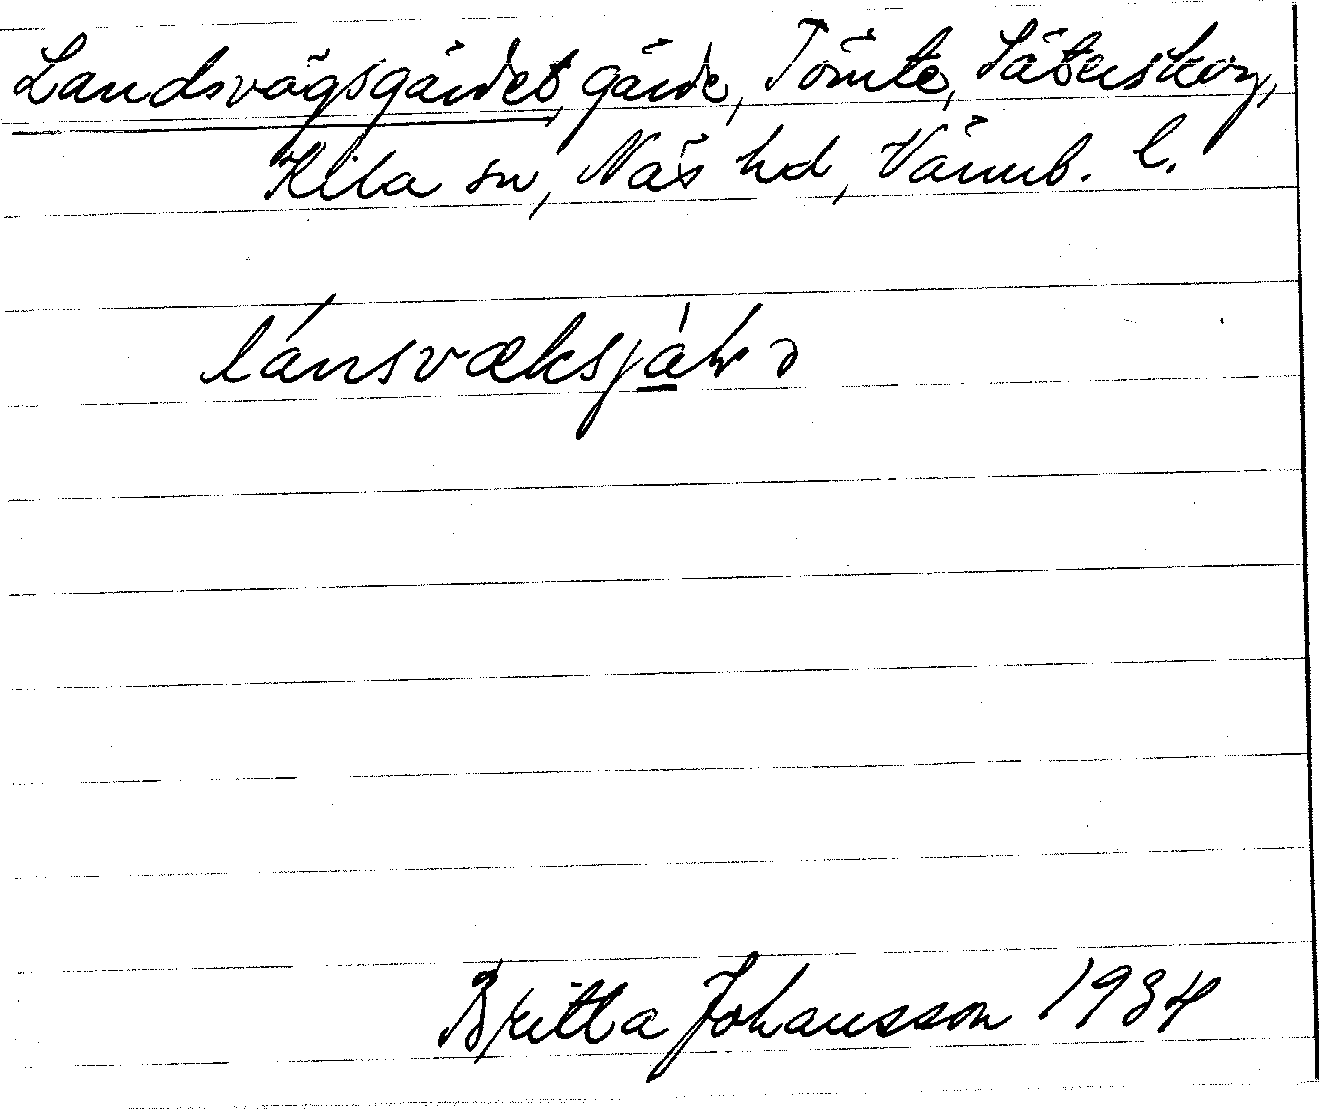 Landsvägsgärdet, gärde, Tömte, Säterskog,
Kila sn, Näs hd, Värmb. l.
lánsvæksjá̱ḷə
Britta Johansson 1934